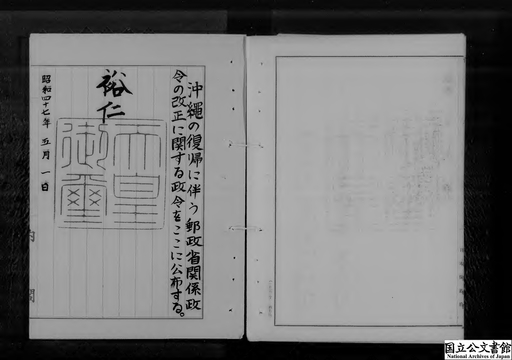 沖縄の復帰に伴う郵政省関係政
令の改正に関する政令をここに公布する。
裕仁
天皇
御璽
昭和四十七年 五月 一日
内閣
国立公文書館
National Archives of Japan